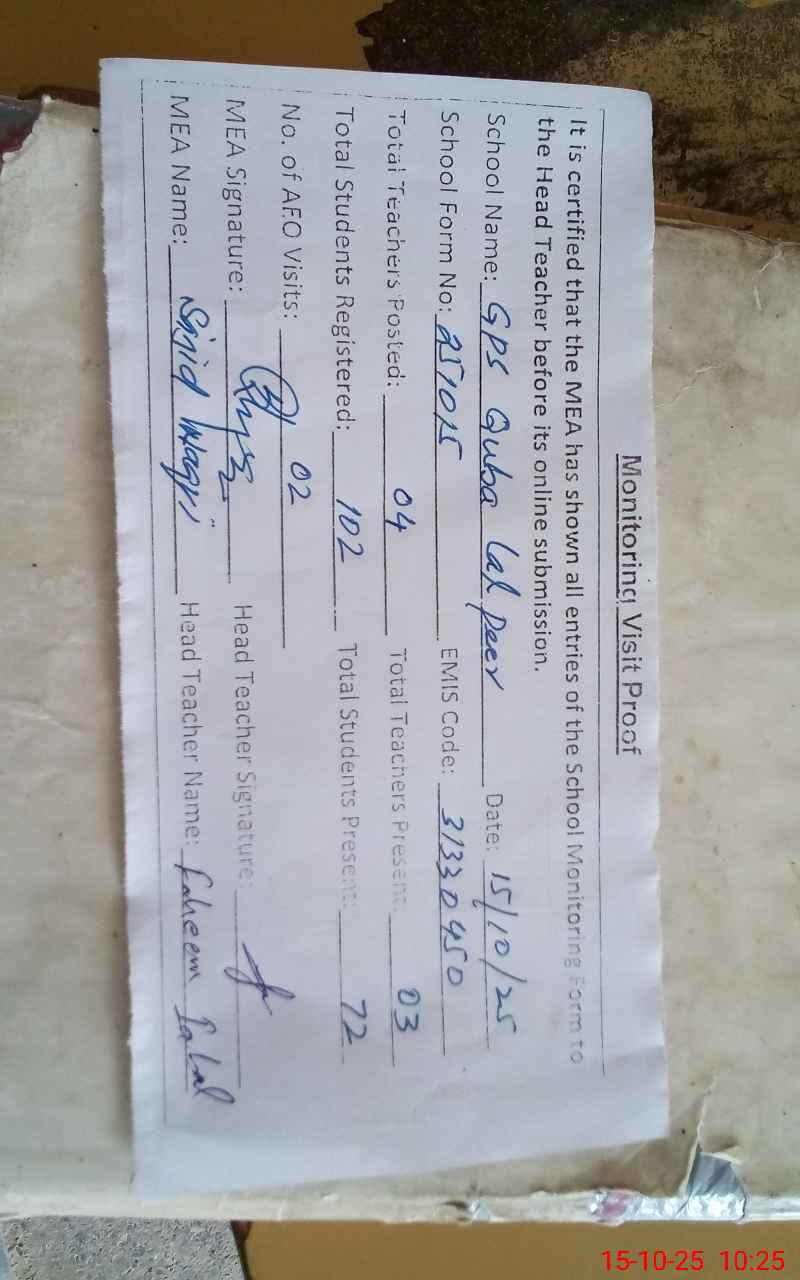 Monitoring Visit Proof
It is certified that the MEA has shown all entries of the School Monitoring Form to
the Head Teacher before its online submission.
School Name: GPS Quba Lal peer Date: 15/10/25
School Form No: 251015 EMIS Code: 31330450
Total Teachers Posted: 04 Total Teachers Present: 03
Total Students Registered: 102 Total Students Present: 72
No. of AEO Visits: 02
MEA Signature: Head Teacher Signature:
MEA Name: Sajid Head Teacher Name: Faheem
15-10-25 10:25